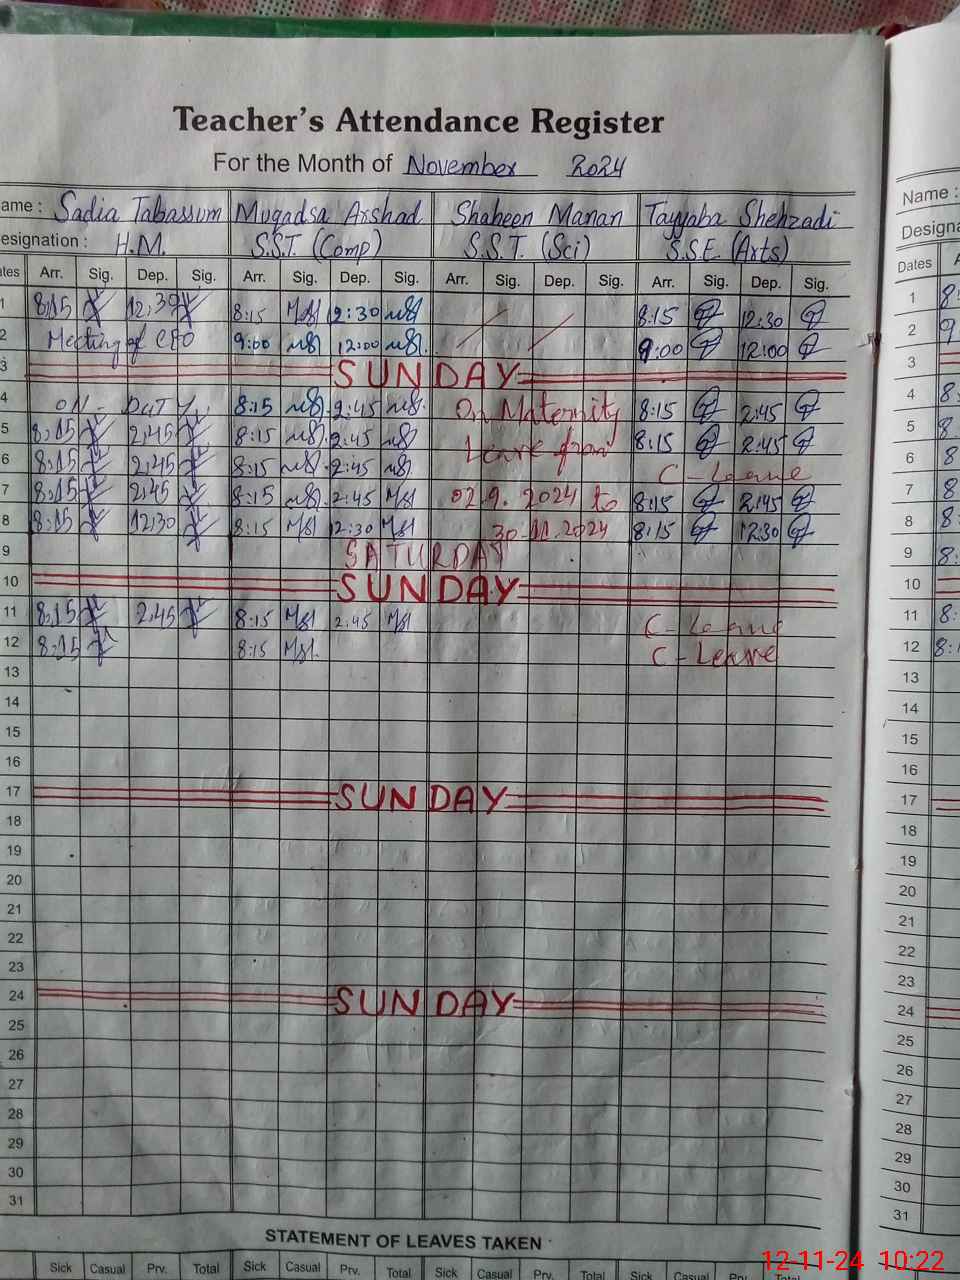 Teacher's Attendance Register
For the Month of November 2024
ame : Sadia Tabassum Muqadsa Arshad Shaheen Manan Tayyaba Shehzadi Name :
esignation : H.M. S.S.T (Comp) S.S.T. (Sci) S.S.E (Arts) Designa
ates Arr. Sig. Dep. Sig. Arr. Sig. Dep. Sig. Arr. Sig. Dep. Sig. Arr. Sig. Dep. Sig. Dates A
1 8:15 12:30 8:15 12:30 8:15 12:30 1 8
2 Meeting of CEO 9:00 12:00 9:00 12:00 2 9
3 SUNDAY 3
4 ON - DUTY 8:15 2:45 On Maternity 8:15 2:45 4 8
5 8:15 2:45 8:15 2:45 Leave from 8:15 2:45 5 8
6 8:15 2:45 8:15 2:45 C-Leave 6 8
7 8:15 2:45 8:15 2:45 02.9.2024 to 8:15 2:45 7 8
8 8:15 12:30 8:15 12:30 30.11.2024 8:15 12:30 8 8
9 SATURDAY 9 8
10 SUNDAY 10
11 8:15 2:45 8:15 2:45 C-Leave 11 8
12 8:15 8:15 C-Leave 12 8
13 13
14 14
15 15
16 16
17 SUNDAY 17
18 18
19 19
20 20
21 21
22 22
23 23
24 SUNDAY 24
25 25
26 26
27 27
28 28
29 29
30 30
31 31
STATEMENT OF LEAVES TAKEN
Sick Casual Prv. Total Sick Casual Prv. Total Sick Casual Prv. Total Sick Casual Prv. Total
12-11-24 10:22